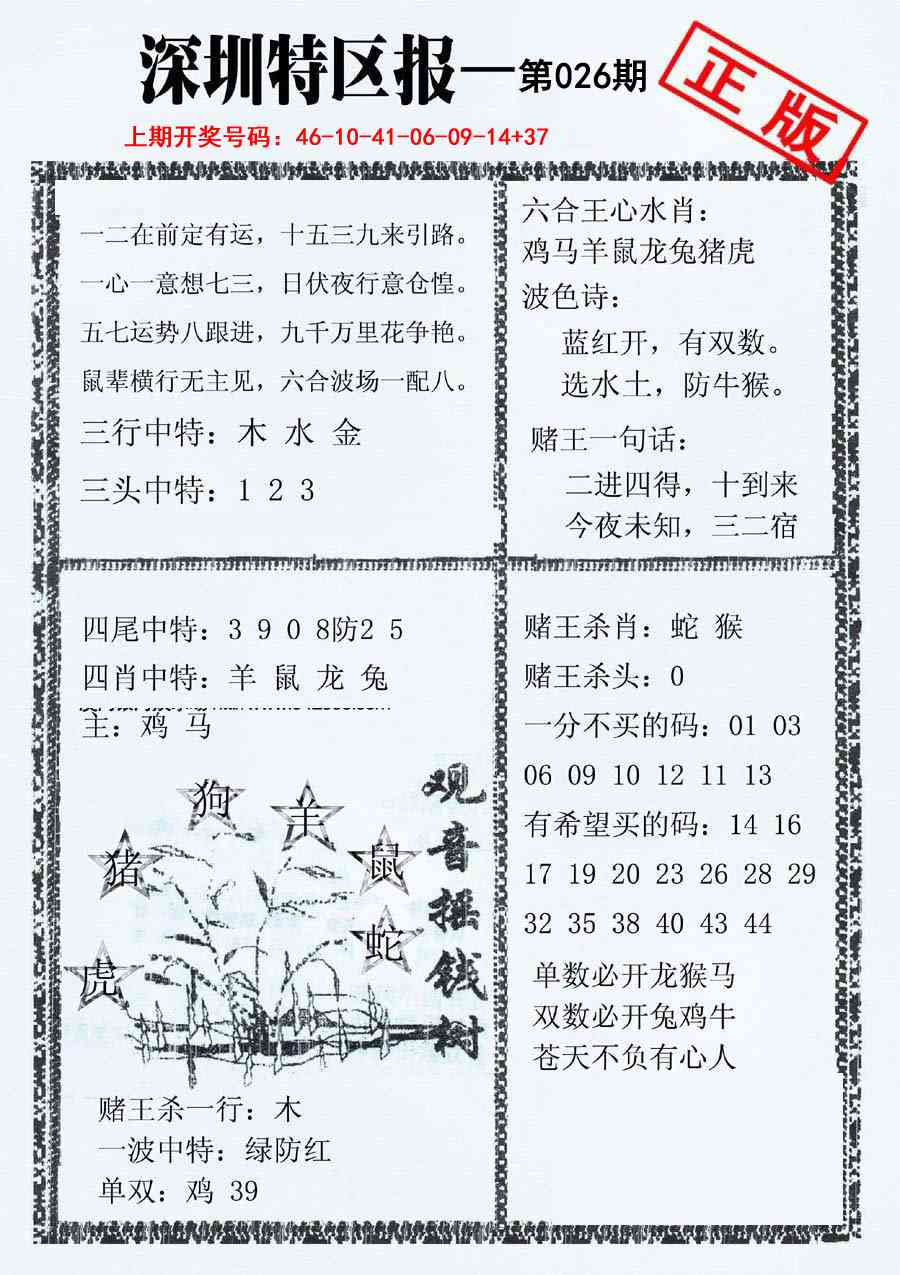 深圳特区报—第026期
正版
上期开奖号码：46-10-41-06-09-14+37
一二在前定有运，十五三九来引路。
一心一意想七三，日伏夜行意仓惶。
五七运势八跟进，九千万里花争艳。
鼠辈横行无主见，六合波场一配八。
三行中特：木 水 金
三头中特：1 2 3
六合王心水肖：
鸡马羊鼠龙兔猪虎
波色诗：
蓝红开，有双数。
选水土，防牛猴。
赌王一句话：
二进四得，十到来
今夜未知，三二宿
四尾中特：3 9 0 8防2 5
四肖中特：羊 鼠 龙 兔
主：鸡 马
狗
羊
猪
鼠
蛇
虎
观音摇钱树
赌王杀一行：木
一波中特：绿防红
单双：鸡 39
赌王杀肖：蛇 猴
赌王杀头：0
一分不买的码：01 03
06 09 10 12 11 13
有希望买的码：14 16
17 19 20 23 26 28 29
32 35 38 40 43 44
单数必开龙猴马
双数必开兔鸡牛
苍天不负有心人